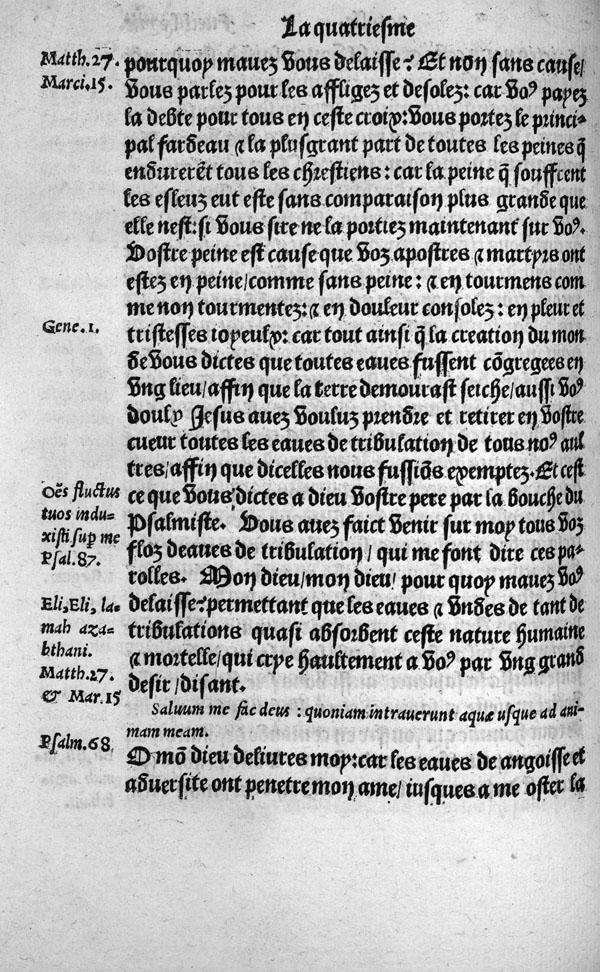 La quatriesme
Matth.27.
Marci.15.
pourquoy mauez vous delaisse? Et non sans cause/
vous parlez pour les affligez et desolez: car voꝰ payez
la debte pour tous en ceste croix: vous portez le princi-
pal fardeau ⁊ la plusgrant part de toutes les peines q̃
endurerẽt tous les chrestiens: car la peine q̃ souffrent
les esleuz eut este sans comparaison plus grande que
elle nest: si vous sire ne la portiez maintenant sur voꝰ.
Vostre peine est cause que voz apostres ⁊ martyrs ont
estez en peine/comme sans peine: ⁊ en tourmens com
me non tourmentez: ⁊ en douleur consolez: en pleur et
Gene.1.
tristesses ioyeulx: car tout ainsi q̃ la creation du mon
de vous dictes que toutes eaues fussent cõgregees en
vng lieu/affin que la terre demourast seiche/aussi voꝰ
doulx Jesus auez vouluz prendre et retirer en vostre
cueur toutes les eaues de tribulation de tous noꝰ aul
tres/affin que dicelles nous fussiõs exemptez. Et cest
Oẽs fluctus
tuos indu-
xisti sup̱ me
Psal.87.
ce que vous dictes a dieu vostre pere par la bouche du
Psalmiste. Vous auez faict venir sur moy tous voz
floz deaues de tribulation/ qui me font dire ces pa-
rolles. Mon dieu/mon dieu/ pour quoy mauez voꝰ
Eli,Eli, la-
mah aza-
bthani.
Matth.27.
& Mar.15
delaisse? permettant que les eaues ⁊ vndes de tant de
tribulations quasi absorbent ceste nature humaine
⁊ mortelle/qui crye haultement a voꝰ par vng grand
desir/disant.
Saluum me fac deus : quoniam intrauerunt aquæ usque ad ani-
mam meam.
Psalm.68.
O mõ dieu deliures moy: car les eaues de angoisse et
aduersite ont penetre mon ame/ iusques a me oster la